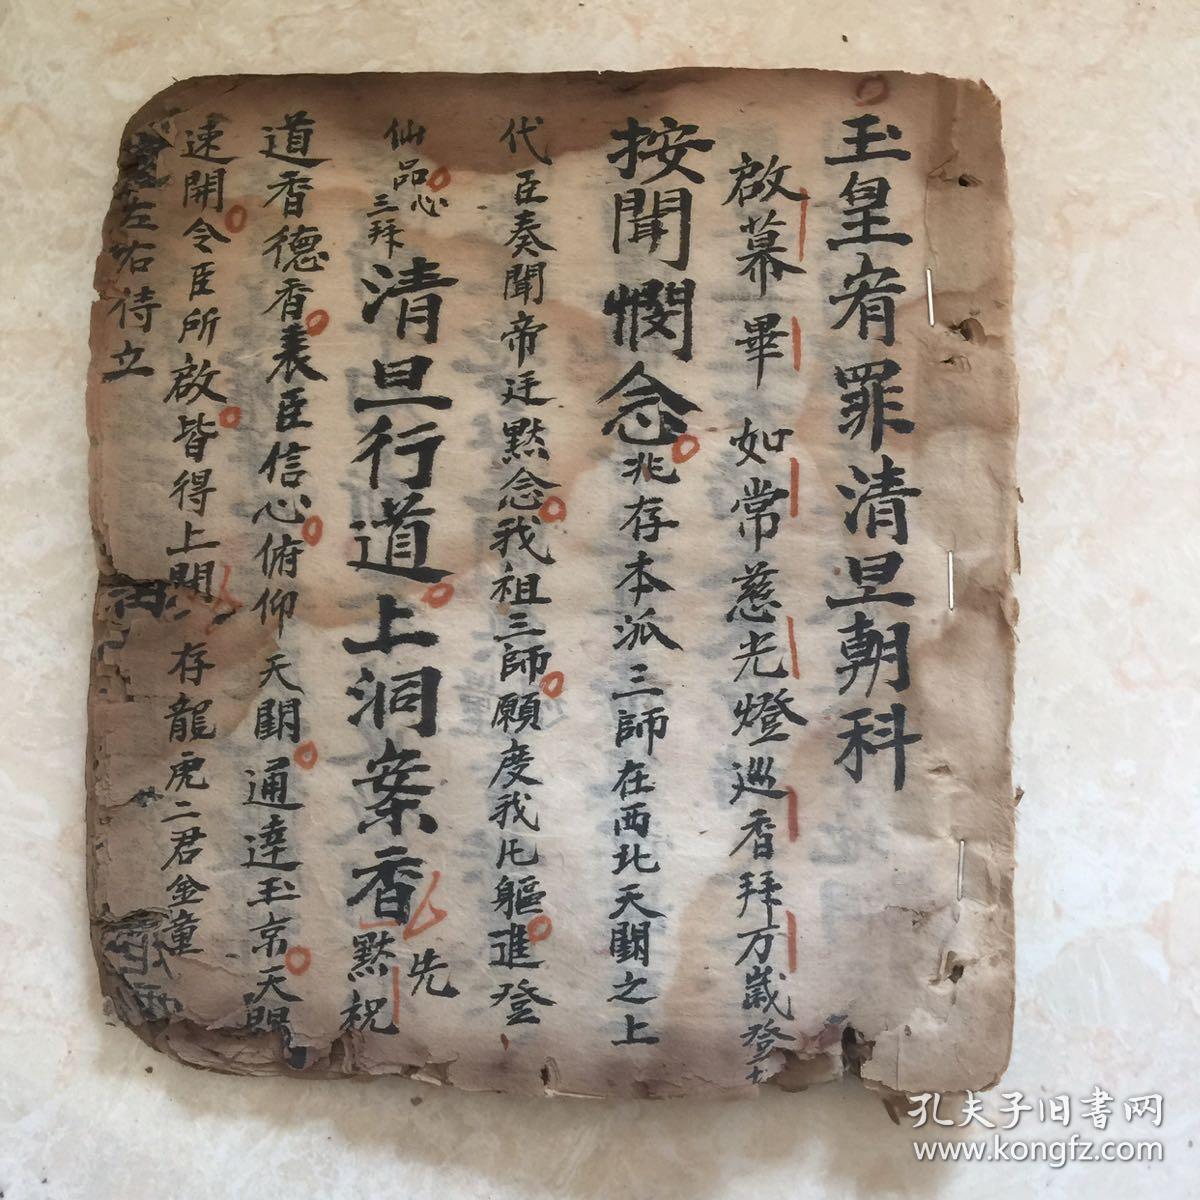 玉皇宥罪清旦朝科
啟幕畢 如常慈光燈巡香拜万歲登
按聞憫念兆存本派三師在西北天闕之上
代臣奏聞帝廷黙念我祖三師願度我凡軀進登
仙品心三拜清旦行道上洞案香先黙祝
道香德香表臣信心俯仰天闕通達玉京天
速開令臣所啟皆得上聞 存龍虎二君金童
左右待立
孔夫子旧書网
www.kongfz.com